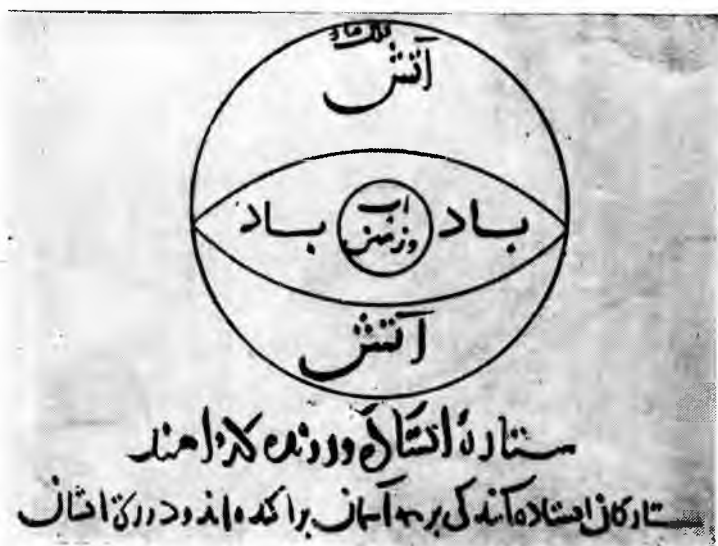 فلک ماه
آتش
باد
اب
وزمین
باد
آتش
ستارهٔ ایستاده و رونده کدامند
ستارکان ایستاده آنند کی بر همه آسمان پراکنده اند و دوری ایشان